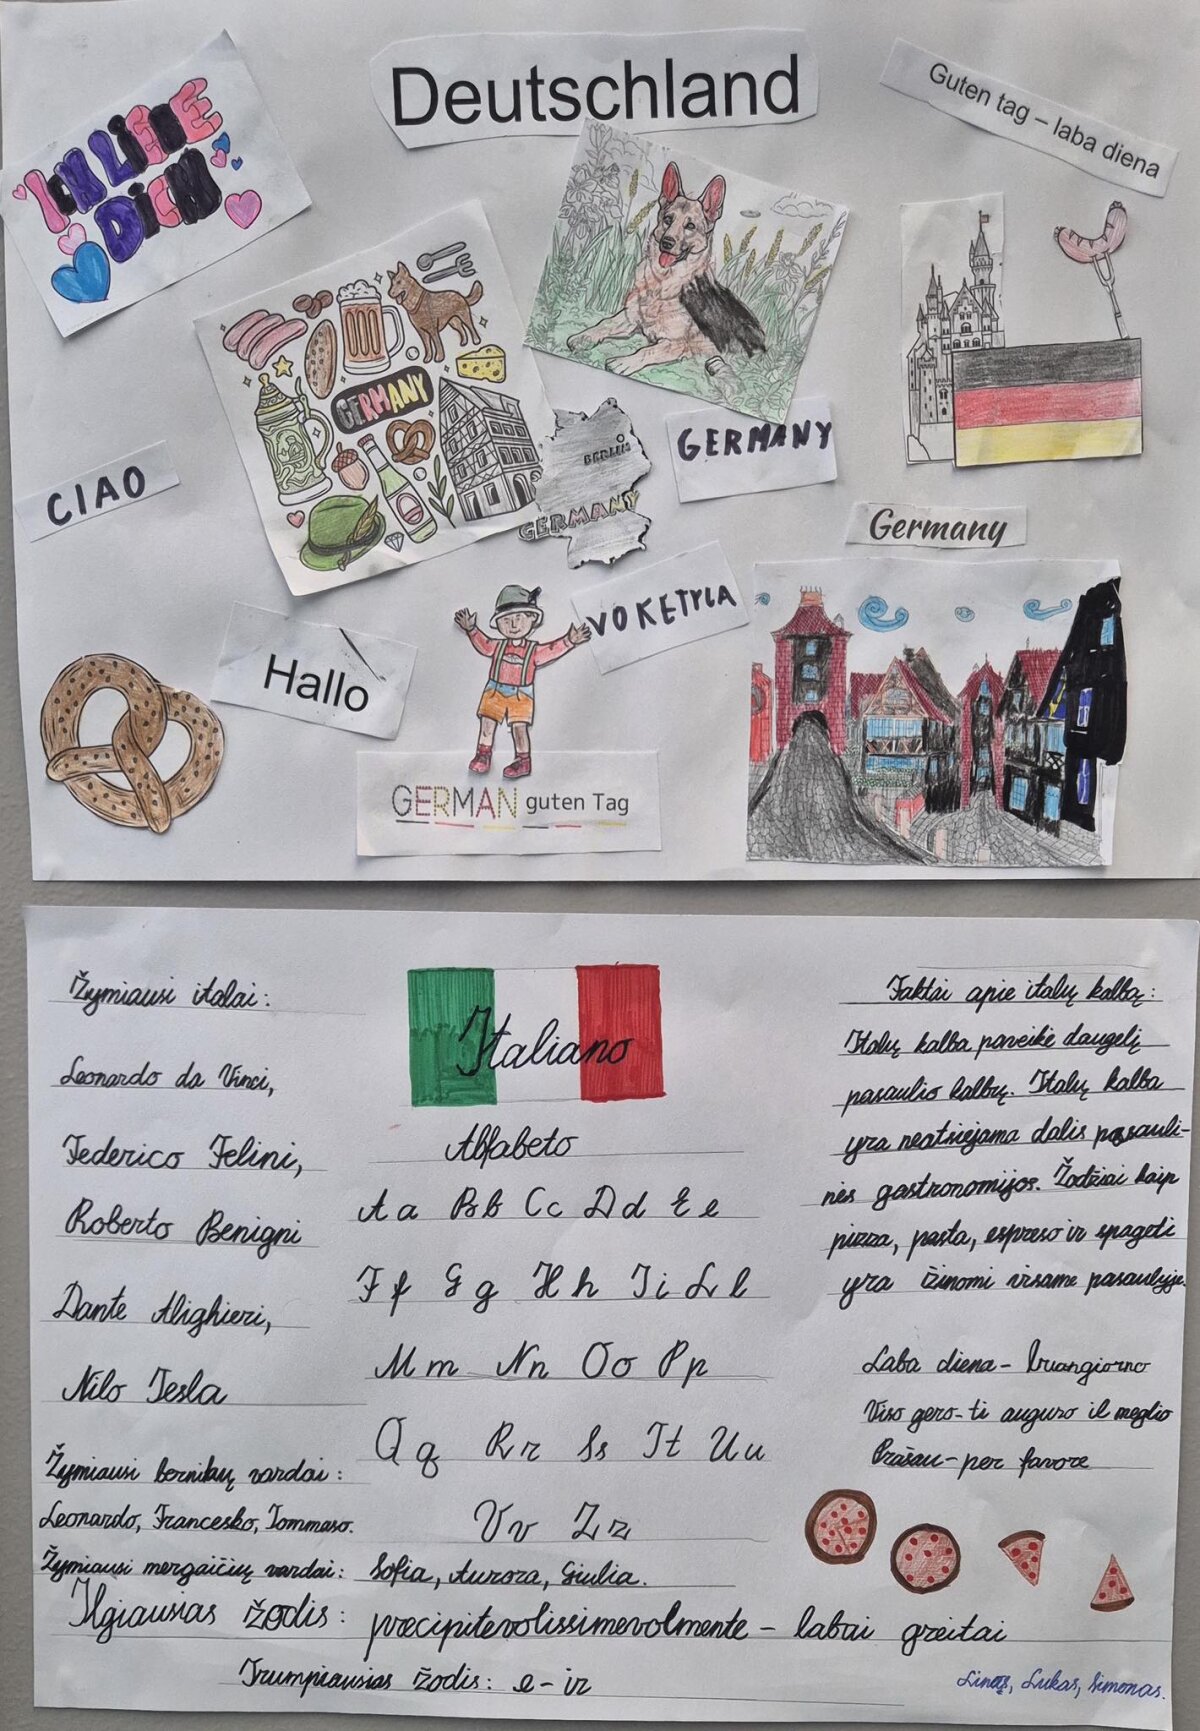 Deutschland
Guten tag – laba diena
ICH LIEBE
DICH
GERMANY
BERLIN
GERMANY
GERMANY
CIAO
Germany
VOKETYLA
Hallo
GERMAN guten Tag
Žymiausi italai:
Leonardo da Vinci,
Federico Felini,
Roberto Benigni
Dante Alighieri,
Nilo Tesla
Žymiausi berniukų vardai:
Leonardo, Francesko, Tommaso.
Žymiausi mergaičių vardai: Sofia, Aurora, Giulia.
Italiano
Alfabeto
Aa Bb Cc Dd Ee
Ff Gg Hh Ii Ll
Mm Nn Oo Pp
Qq Rr Ss Tt Uu
Vv Zz
Faktai apie italų kalbą:
Italų kalba paveikė daugelį
pasaulio kalbų. Italų kalba
yra neatsiejama dalis pasauli-
nės gastronomijos. Žodžiai kaip
pizza, pasta, espreso ir spageti
yra žinomi visame pasaulyje.
Laba diena - buongiorno
Viso gero - ti auguro il meglio
Prašau - per favore
Ilgiausias žodis: precipitevolissimevolmente - labai greitai
Trumpiausias žodis: e - ir
Linas, Lukas, Simonas.